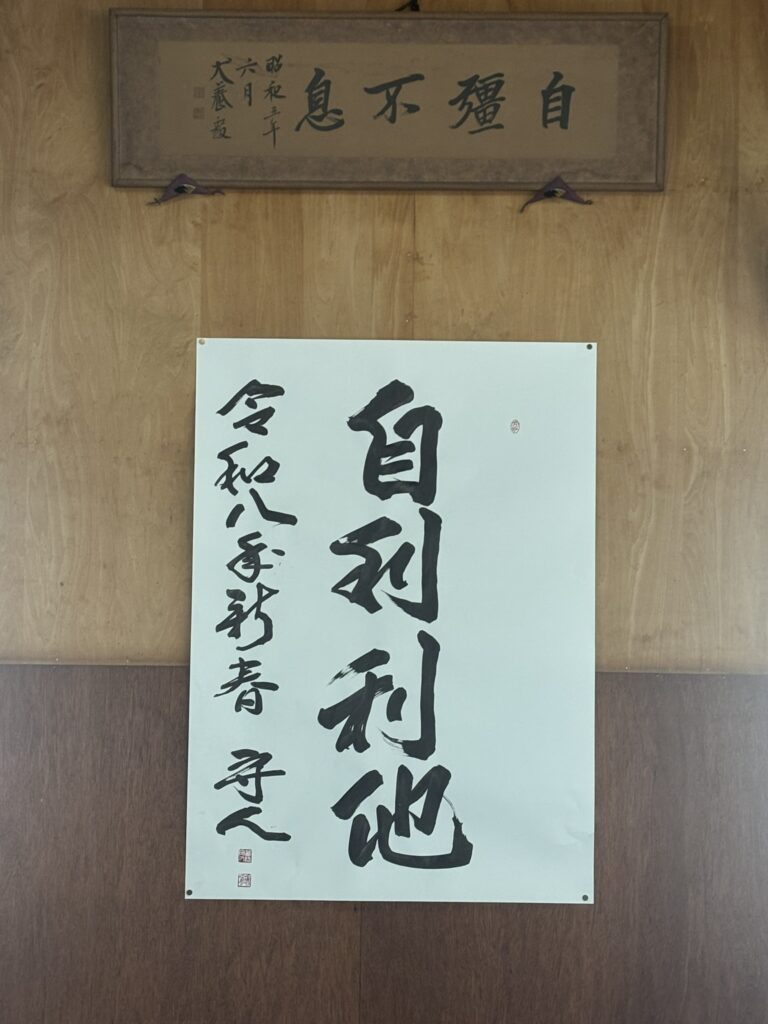 自彊不息
昭和三年
六月
自利利他
令和八年新春 守人